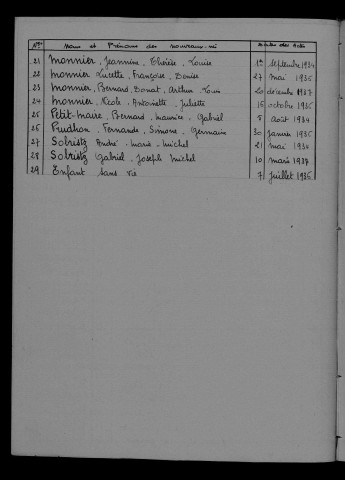 Nos Noms et Prénoms des nouveaux-né Dates des Actes
21 Monnier, Jeannine, Thérèse, Louise 1er septembre 1934
22 Monnier Lucette, Françoise, Denise 27 mai 1936
23 Monnier, Bernard Donat, Arthur Louis 20 décembre 1937
24 Monnier, Nicole, Antoinette, Juliette 16 octobre 1936
25 Petit-Maire, Bernard, Maurice, Gabriel 8 août 1934
26 Prudhon, Fernande, Simone, Germain 30 janvier 1936
27 André, Marie, Michel 21 mai 1934
28 Gabriel, Joseph Michel 10 mars 1937
29 Enfant sans vie 7 juillet 1936